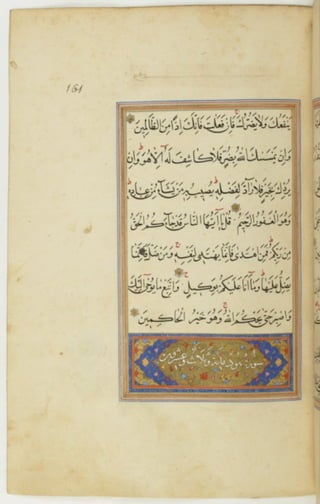 يَنْفَعُكَ وَلَا يَضُرُّكَ فَإِنْ فَعَلْتَ فَإِنَّكَ إِذًا مِنَ الظَّالِمِينَ
وَإِنْ يَمْسَسْكَ اللهُ بِضُرٍّ فَلَا كَاشِفَ لَهُ إِلَّا هُوَ وَإِنْ
يُرِدْكَ بِخَيْرٍ فَلَا رَادَّ لِفَضْلِهِ يُصِيبُ بِهِ مَنْ يَشَاءُ مِنْ عِبَادِهِ
وَهُوَ الْغَفُورُ الرَّحِيمُ قُلْ يَا أَيُّهَا النَّاسُ قَدْ جَاءَكُمُ الْحَقُّ
مِنْ رَبِّكُمْ فَمَنِ اهْتَدَى فَإِنَّمَا يَهْتَدِي لِنَفْسِهِ وَمَنْ ضَلَّ فَإِنَّمَا
يَضِلُّ عَلَيْهَا وَمَا أَنَا عَلَيْكُمْ بِوَكِيلٍ وَاتَّبِعْ مَا يُوحَى إِلَيْكَ
وَاصْبِرْ حَتَّى يَحْكُمَ اللهُ وَهُوَ خَيْرُ الْحَاكِمِينَ
سورة هود مائة وثلاث وعشرون